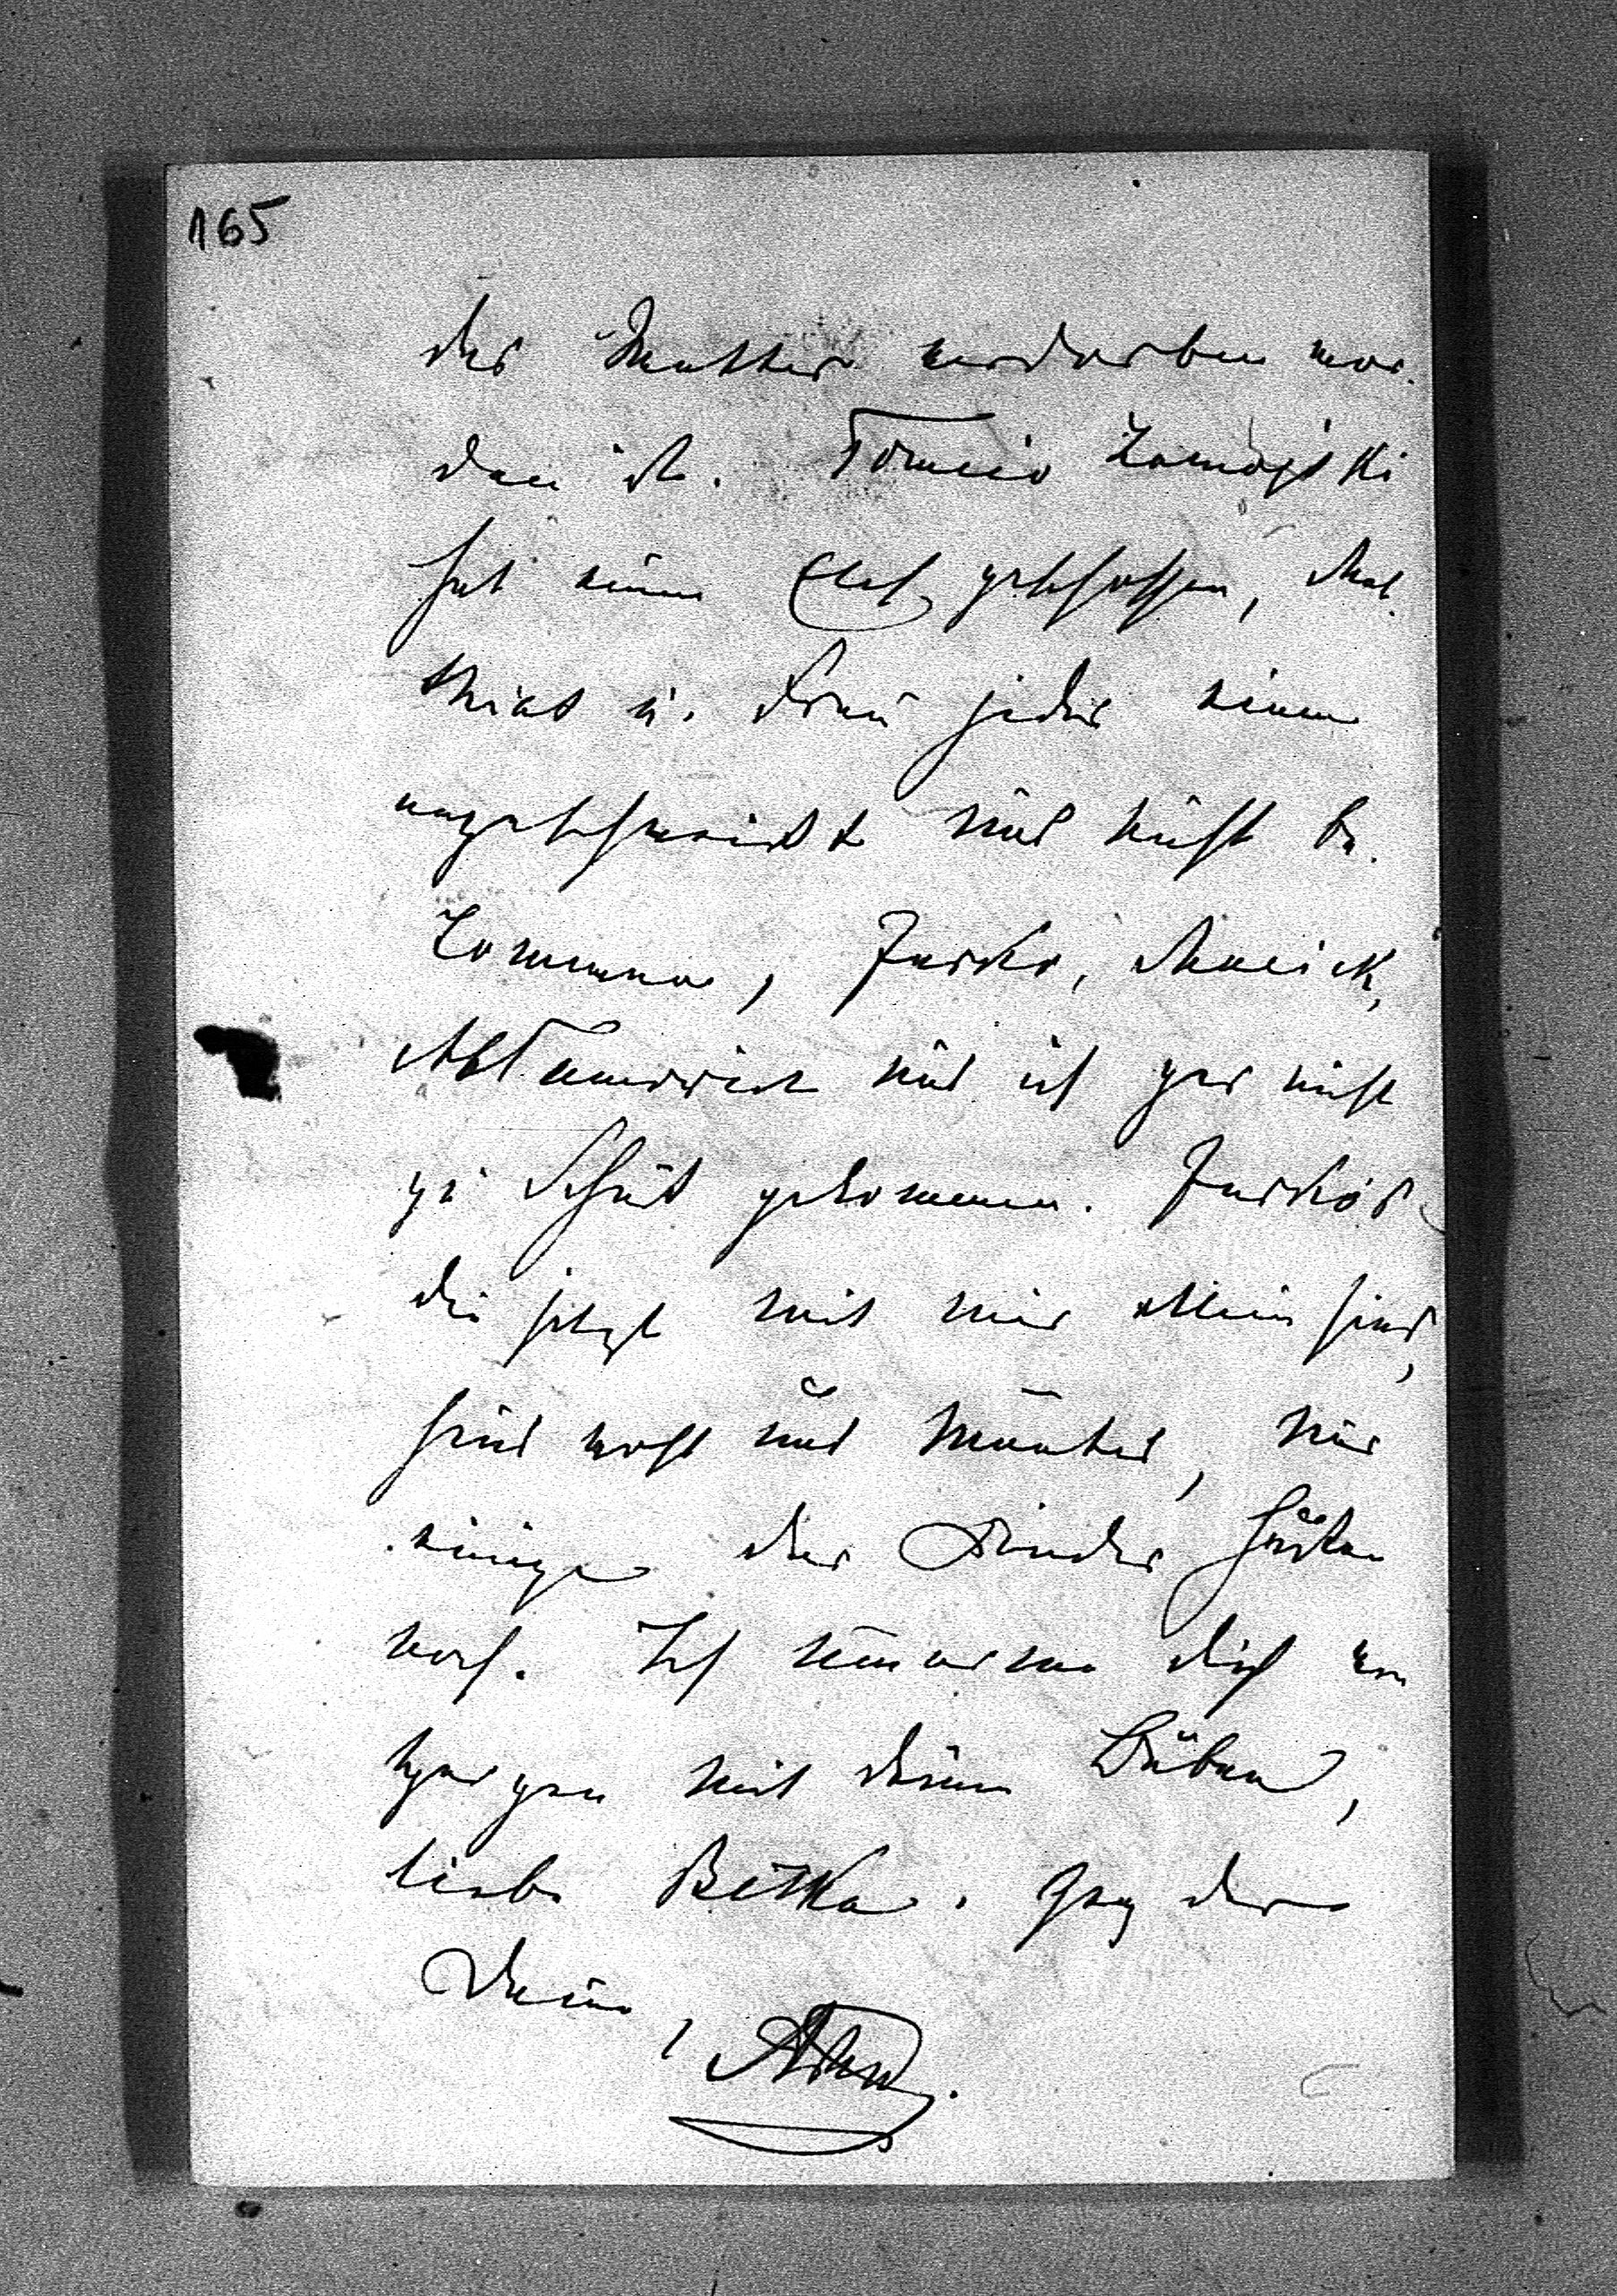 165
der Mutter verdorben wor-
den ist. Tomcio Zamojski
hat einen Elch geschossen, Mat
thias u. Franz jeder einen
angeschweißt und nicht be-
kommen, Jurko, Maciek,
und ich gar nicht
zu Schuß gekommen. Jurkós
die jetzt mit mir allein sind,
sind wohl und munter, nur
einige der Kinder husten
noch. Ich umarme dich von
Herzen mit deinen Buben,
liebe Bétka. Ganz der
Deine,